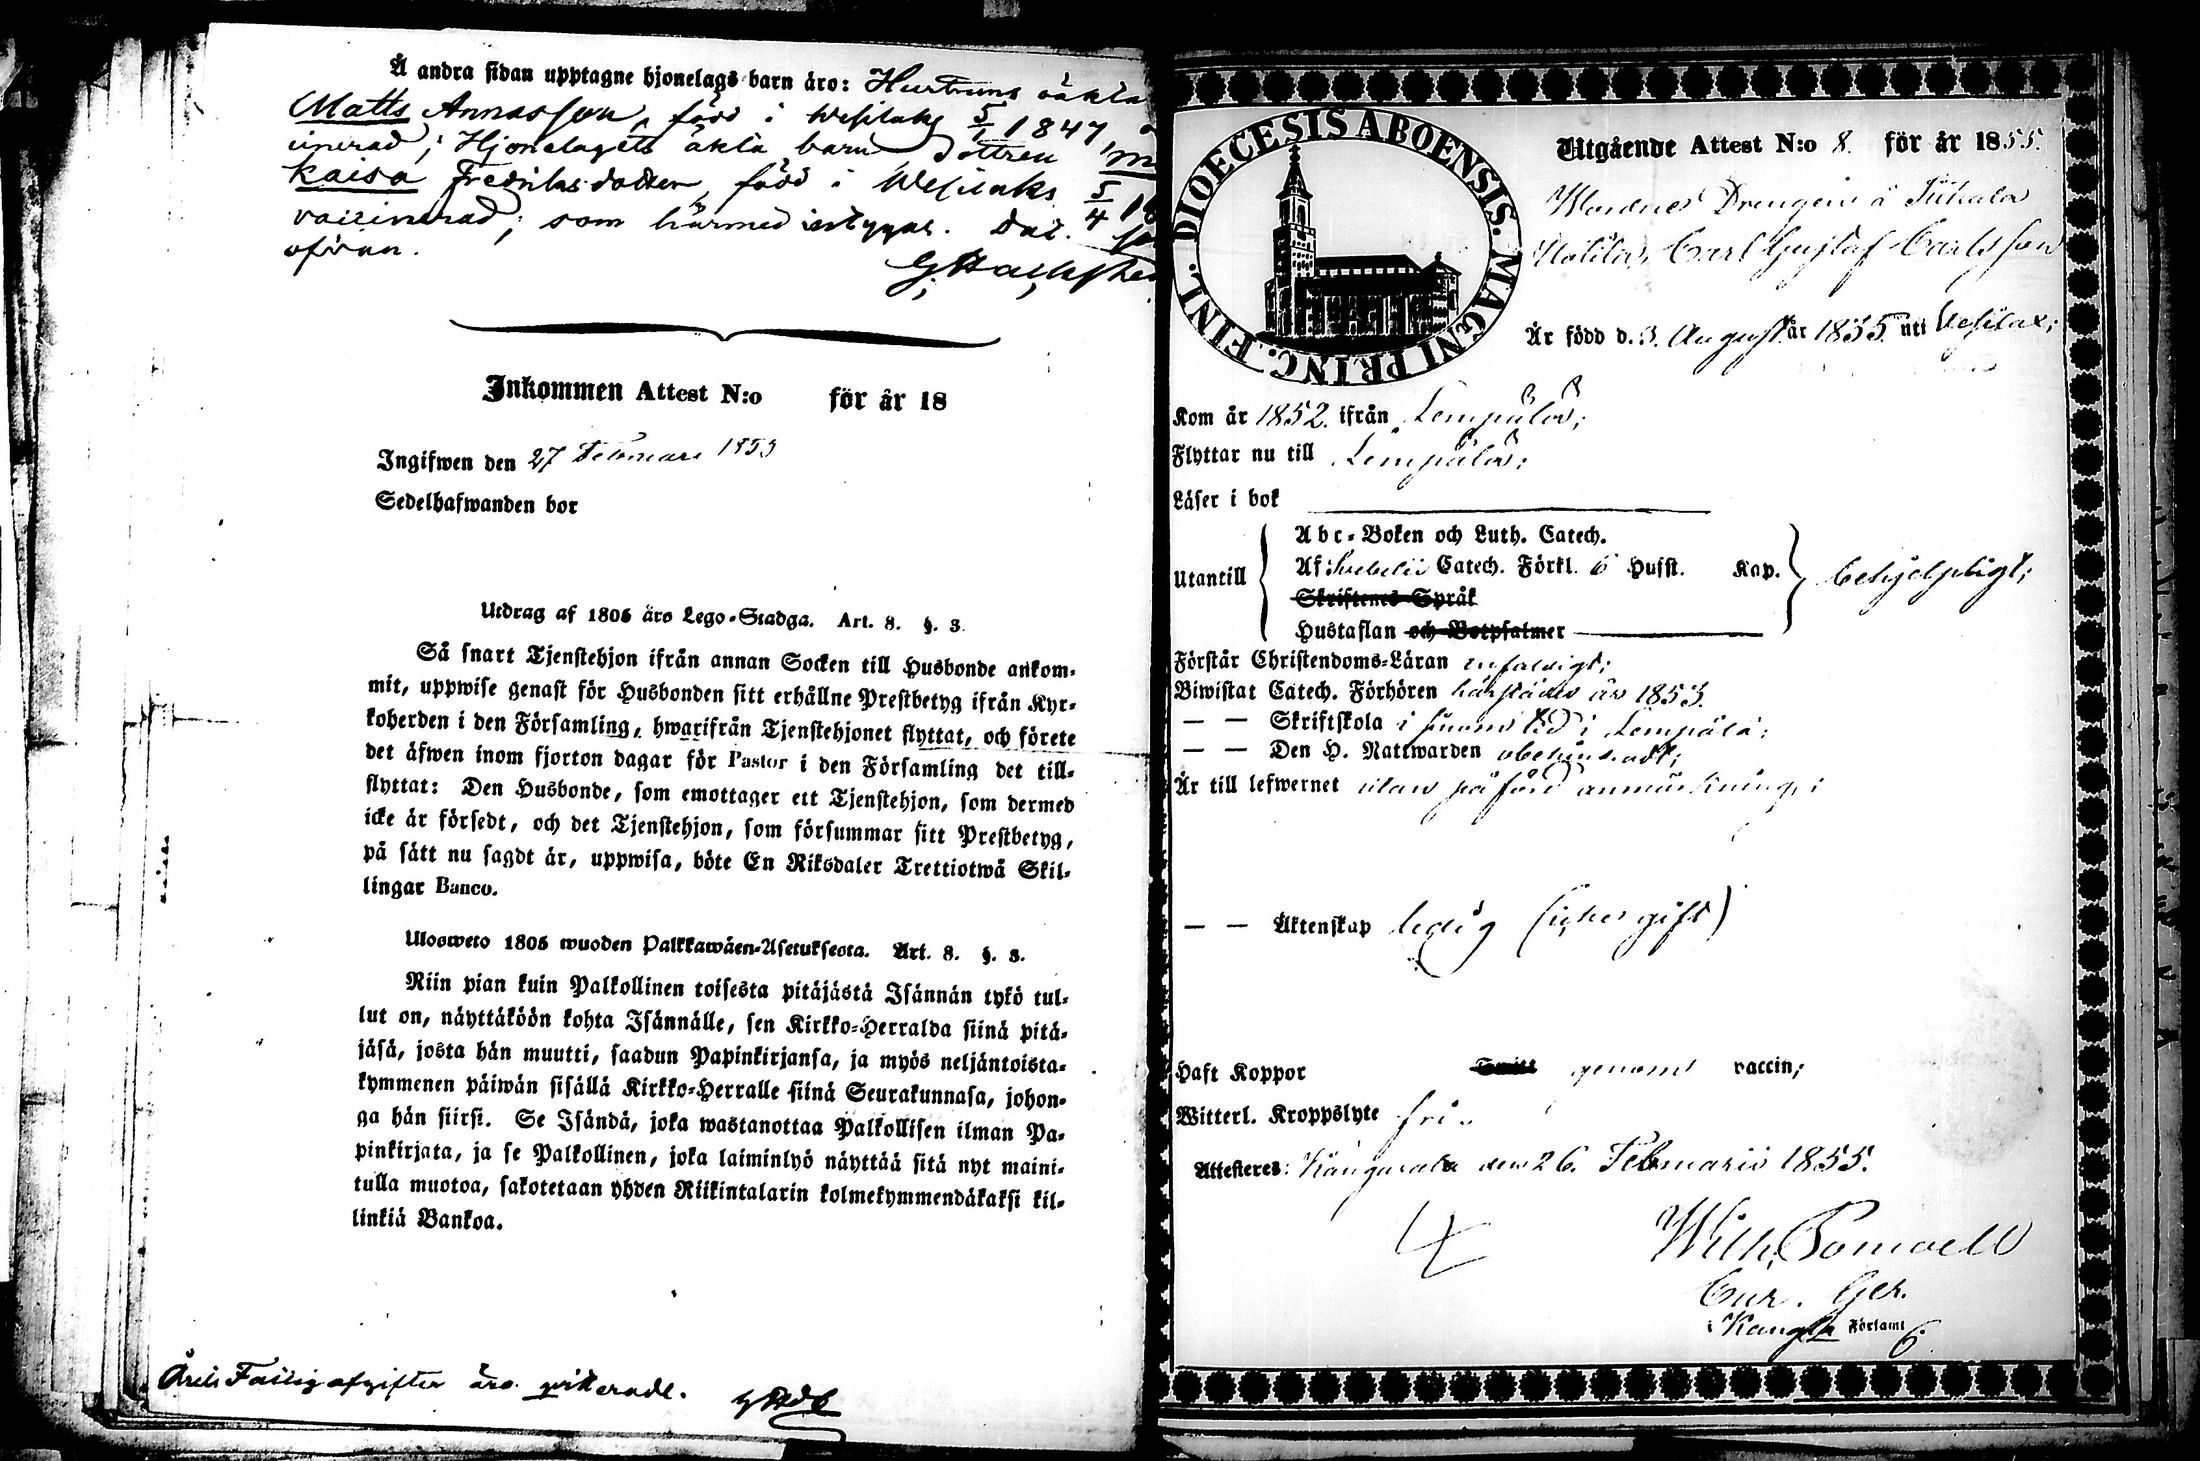 Å andra sidan upptagne hjonelags barn äro: Hustruns oäkta
Matts Annasson, född i Wesilaks 5/1 1847,
Hjonelagets äkta barn Dottren
Kaisa Fredriksdotter, född i Wesilaks 5/4
vaccinerad; som härmed intygas. Dat.
ofvan.
Inkommen Attest N:o för år 18
Ingifwen den 27 Februari 1855
Sedelhafwanden bor
Utdrag af 1805 års Lego-Stadga. Art. 8. §. 3.
Så snart Tjenstehjon ifrån annan Socken till Husbonde ankom-
mit, uppwise genast för Husbonden sitt erhållne Prestbetyg ifrån Kyr-
koherden i den Församling, hwarifrån Tjenstehjonet flyttat, och förete
det äfwen inom fjorton dagar för Pastor i den Församling det till-
flyttat: Den Husbonde, som emottager ett Tjenstehjon, som dermed
icke är försedt, och det Tjenstehjon, som försummar sitt Prestbetyg,
på sätt nu sagdt är, uppwisa, böte En Riksdaler Trettiotwå Skil-
lingar Banco.
Ulosweto 1805 wuoden Palkkawäen-Asetuksesta. Art. 8. §. 3.
Niin pian kuin Palkollinen toisesta pitäjästä Isännän tykö tul-
lut on, näyttäköön kohta Isännälle, sen Kirkko-Herralda siinä pitä-
jäsä, josta hän muutti, saadun Papinkirjansa, ja myös neljäntoista-
kymmenen päiwän sisällä Kirkko-Herralle siinä Seurakunnasa, johon-
ga hän siirsi. Se Isändä, joka wastanottaa Palkollisen ilman Pa-
pinkirjata, ja se Palkollinen, joka laiminlyö näyttää sitä nyt maini-
tulla muotoa, sakotetaan yhden Riikintalarin kolmekymmendäkaksi kil-
linkiä Bankoa.
afgifter äro
DIOECESIS ABOENSIS. MAGNI PRINC. FINL.
Utgående Attest N:o 8. för år 1855.
Drengen å
Carl Gustaf Carlsson
Är född d. 3. August. år 1835. uti Vesilax;
Kom år 1852. ifrån Lempälä;
Flyttar nu till Lempälä;
Läser i bok
Utantill
Abc-Boken och Luth. Catech.
Af Svebelii Catech. Förkl. 6 Hufst. Kap.
Skriftenes Språk
Hustaflan och Botpsalmer
behjelpligt;
Förstår Christendoms-Läran enfaldigt;
Biwistat Catech. Förhören härstädes år 1853.
— — Skriftskola i sinom tid i Lempälä;
— — Den H. Nattwarden obehindradt;
Är till lefwernet utan påförd anmärkning;
— — Äktenskap ledig (icke gift)
Haft Koppor Smitt genom vaccin;
Witterl. Kroppslyte fri.
Attesteres: Kangasala den 26. Februarii 1855.
Wilh. Pomoell
Cur. Ger.
i Kangla Förlaml
6.